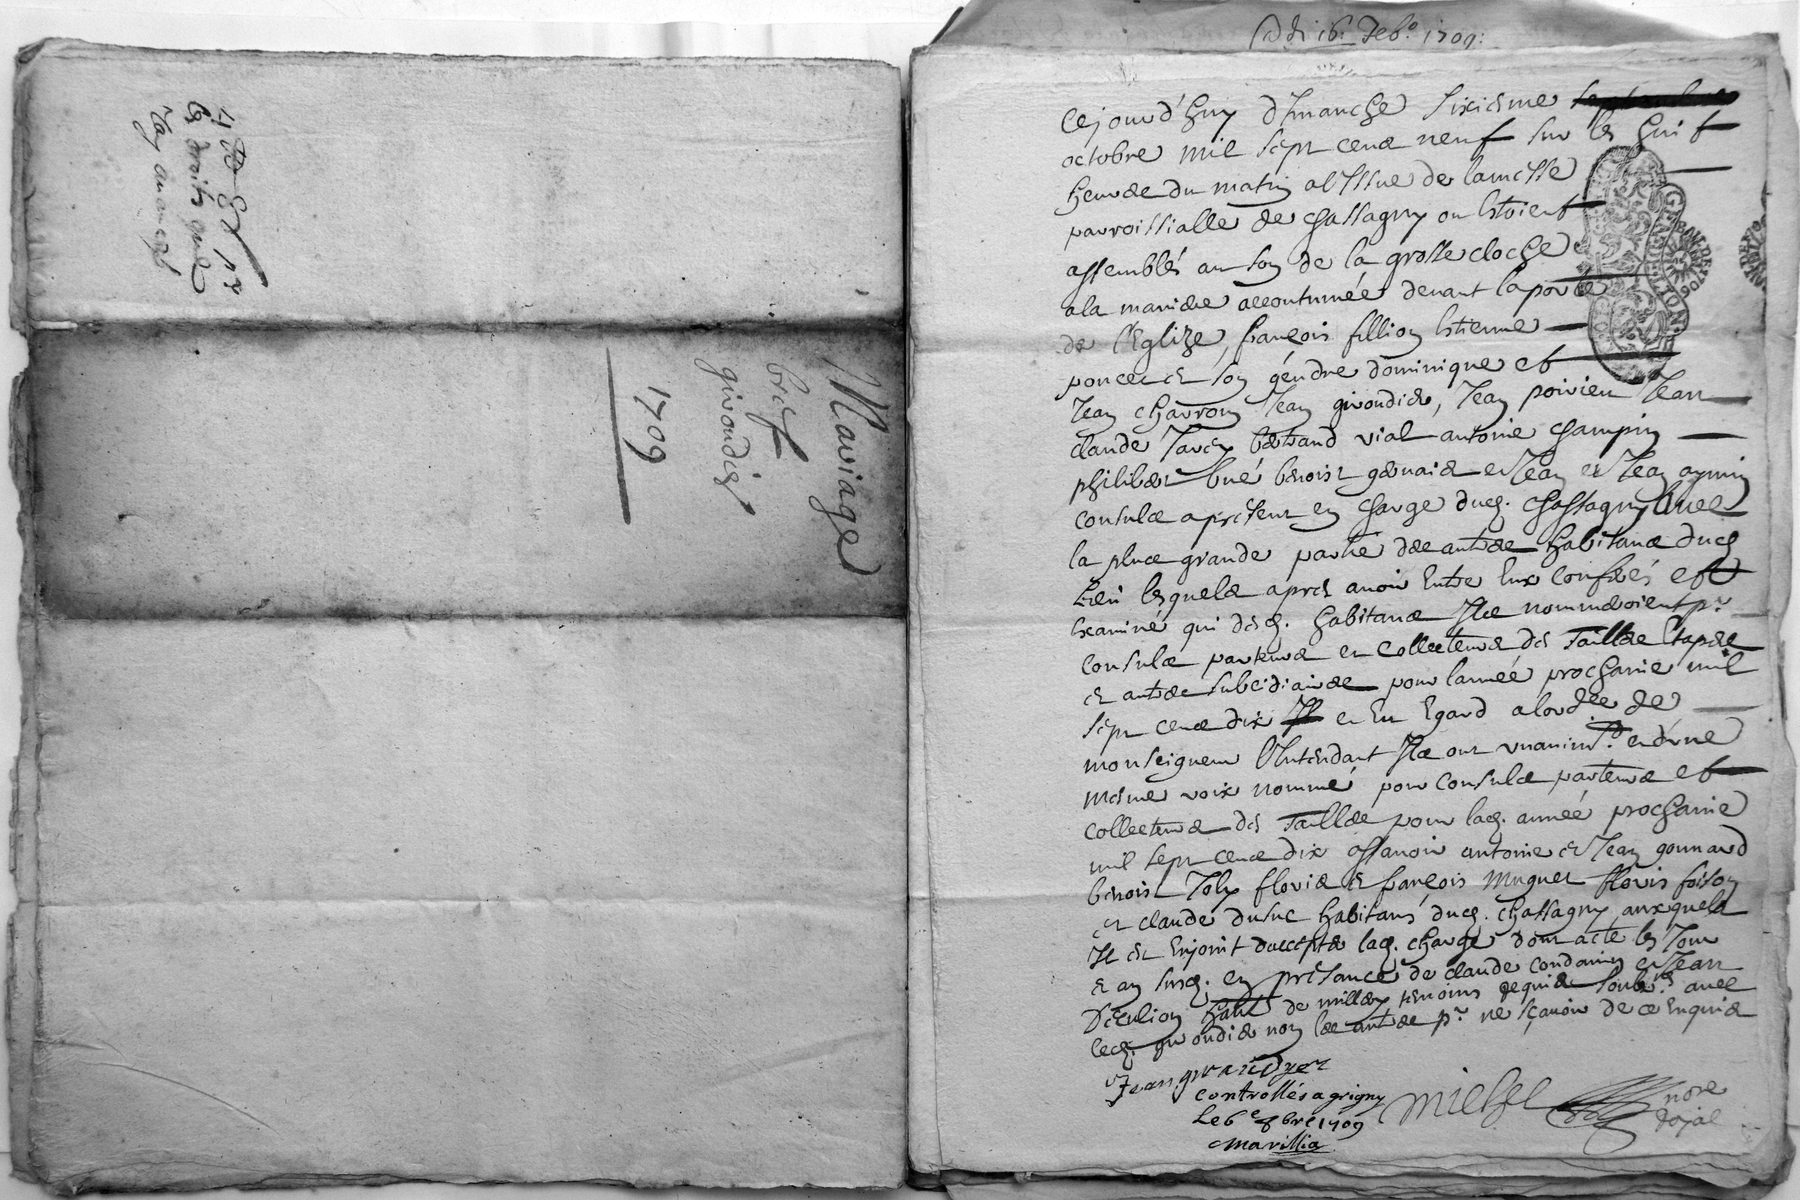 4 
les droits que
Mariage
bref
girondier
1709
16 Feb.º 1709
Cejourd'huy dimanche sixiesme septembre
octobre mil sept cens neuf sur les huit
heures du matin a l'issue de la messe
parroissialle de Chassagny ou estoient
assemblés au son de la grosse cloche
a la maniere accoutumée devant la porte
de l'Eglize, françois fillion Estienne
poncet et son gendre dominique et
Jean charron Jean girondier, Jean poirieu Jean
claude Jarcy bertrand vial antoine champin
philibert bué benoist gervais et Jean et Jean aymin
consuls a present en charge dud. Chassagny avec
la plus grande partie des autres habitans dud
lieu lesquels apres avoir Entre Eux conferés et
Examiné qui desd. habitans Ils nommeroient pr.
consuls parteurs et collecteurs des Tailles Etapes
et autres subcidiaires pour l'année prochaine mil
sept cens dix et Eu Egard a lordre de
monseigneur l'Intendant Ils ont unanim.t et d'une
mesme voix nommé pour consuls parteurs et
collecteurs des Tailles pour lad. année prochaine
mil sept cens dix assavoir antoine et Jean gonnard
benoist Joly floris et françois muguet floris foison
et claude dusuc habitans dud. Chassagny auxquels
Il est Enjoint daccepter lad. charge dont acte les Jour
et an susd. en presance de claude condamin et Jean
habts de millery temoins requis soubs.nés avec
led. girondier non les autres pr. ne sçavoir de ce Enquis
Jean girandyer
controllés a grigny
Le 6e 8bre 1709
Marillia
michel
nore
Royal
GENERAL DE LION